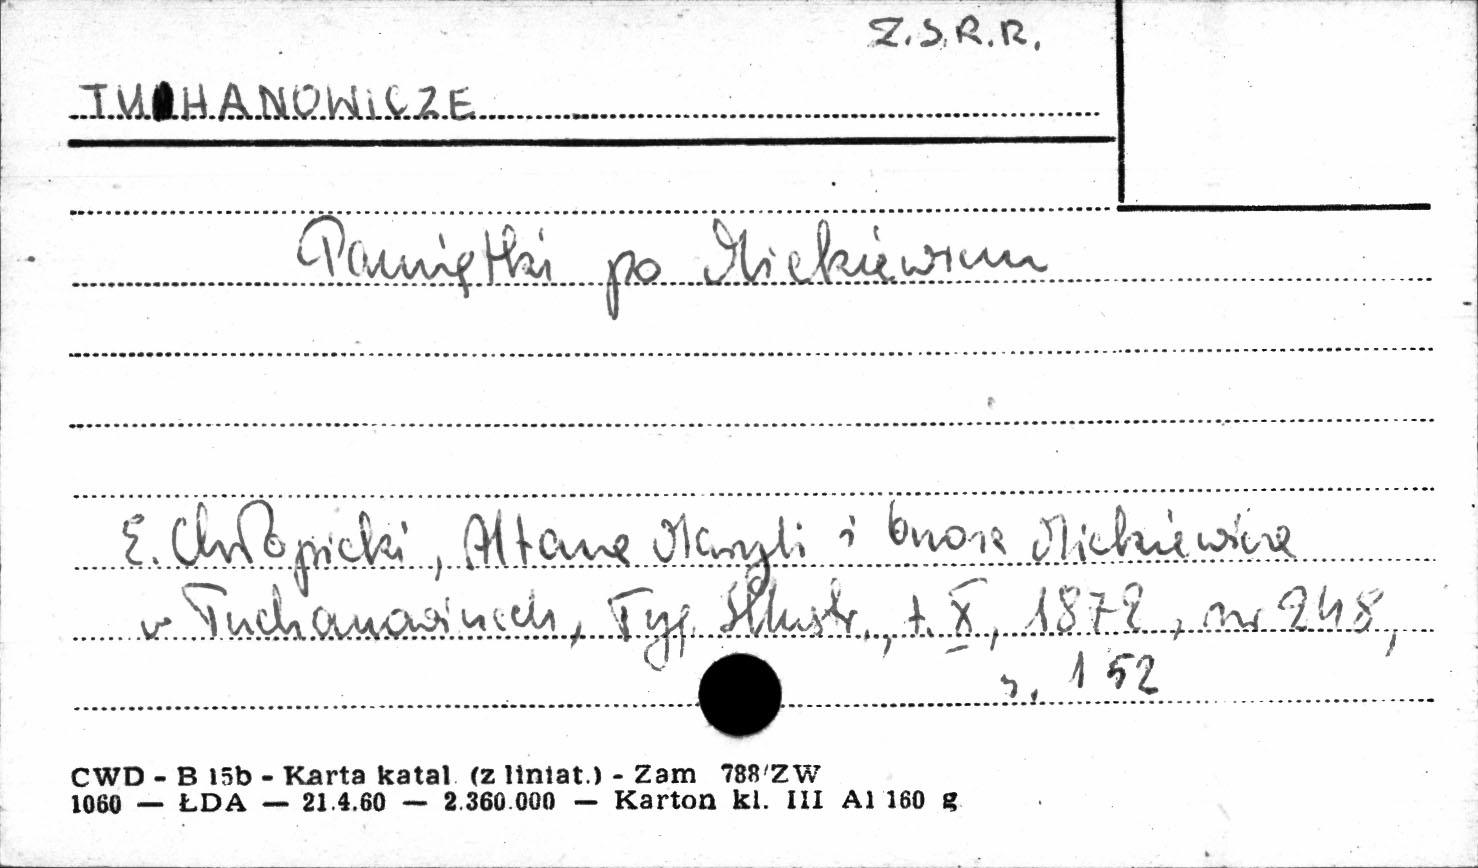 Z.S.R.R.
TUCHANOWICZE
Pamiętki po Mickiewiczu
E. Chłopicki, Altana Maryli i brzoza Mickiewicza
w Tuchanowiczach, Tyg. Illustr., t. X, 1872, nr 248,
s. 152
CWD - B 15b - Karta katal. (z liniat.) - Zam 788/ZW
1060 — ŁDA — 21.4.60 — 2.360.000 — Karton kl. III A1 160 g